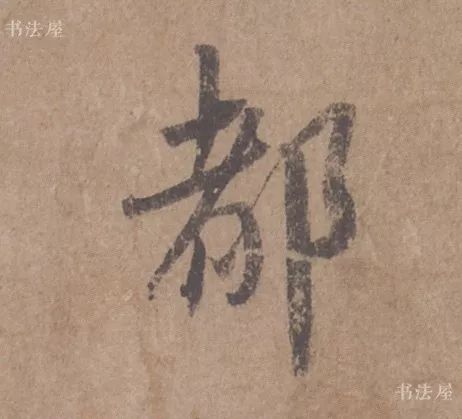 书法屋
都
书法屋